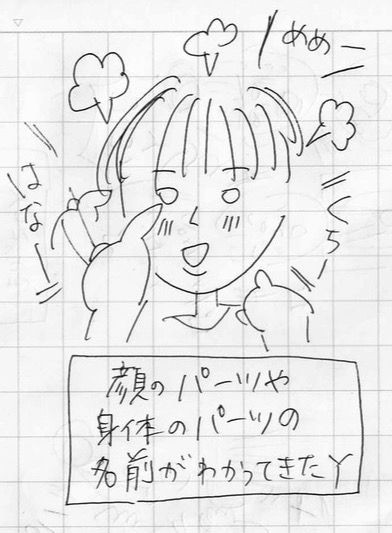 めめー
はなー
くちー
顔のパーツや
身体のパーツの
名前がわかってきたY